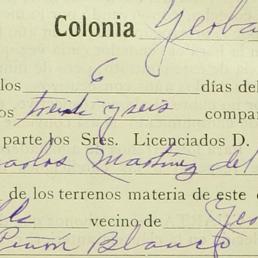 Colonia Yerba
los 6 días del
os treinta y seis compa
parte los Sres. Licenciados D.
arlos Martinez del
de los terrenos materia de este
vecino de Yer
Peñón Blanco